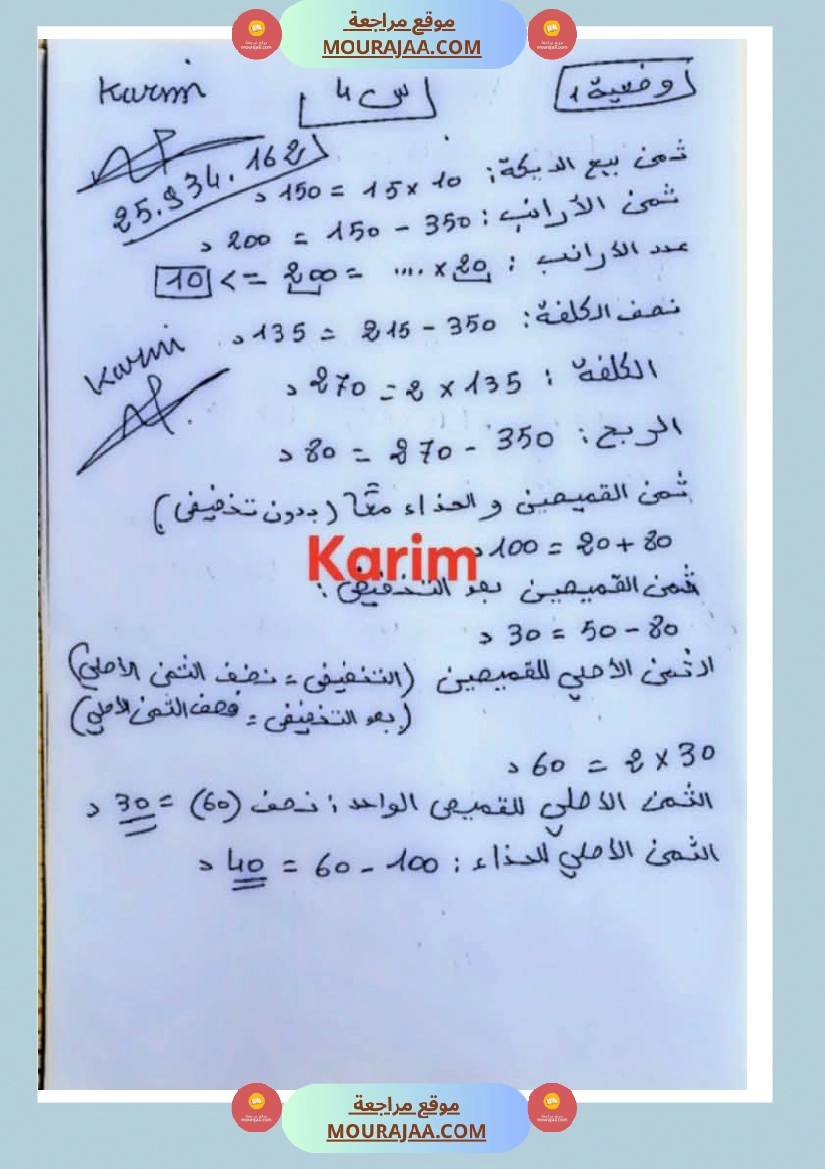 موقع مراجعة
MOURAJAA.COM
Karim
س 4
وضعية 1
25.934.162
ثمن بيع الديكة: 10 × 15 = 150 د
ثمن الأرانب: 350 - 150 = 200 د
عدد الأرانب: 20 × .... = 200 => 10
نصف الكلفة: 350 - 215 = 135 د
Karim
الكلفة: 135 × 2 = 270 د
الربح: 350 - 270 = 80 د
ثمن القميصين و الحذاء معًا (بدون تخفيض)
80 + 20 = 100 د
Karim
ثمن القميصين بعد التخفيض:
80 - 50 = 30 د
الثمن الأصلي للقميصين (التخفيض = نصف الثمن الأصلي)
(بعد التخفيض = نصف الثمن الأصلي)
30 × 2 = 60 د
الثمن الأصلي للقميص الواحد: نصف (60) = 30 د
الثمن الأصلي للحذاء: 100 - 60 = 40 د
موقع مراجعة
MOURAJAA.COM